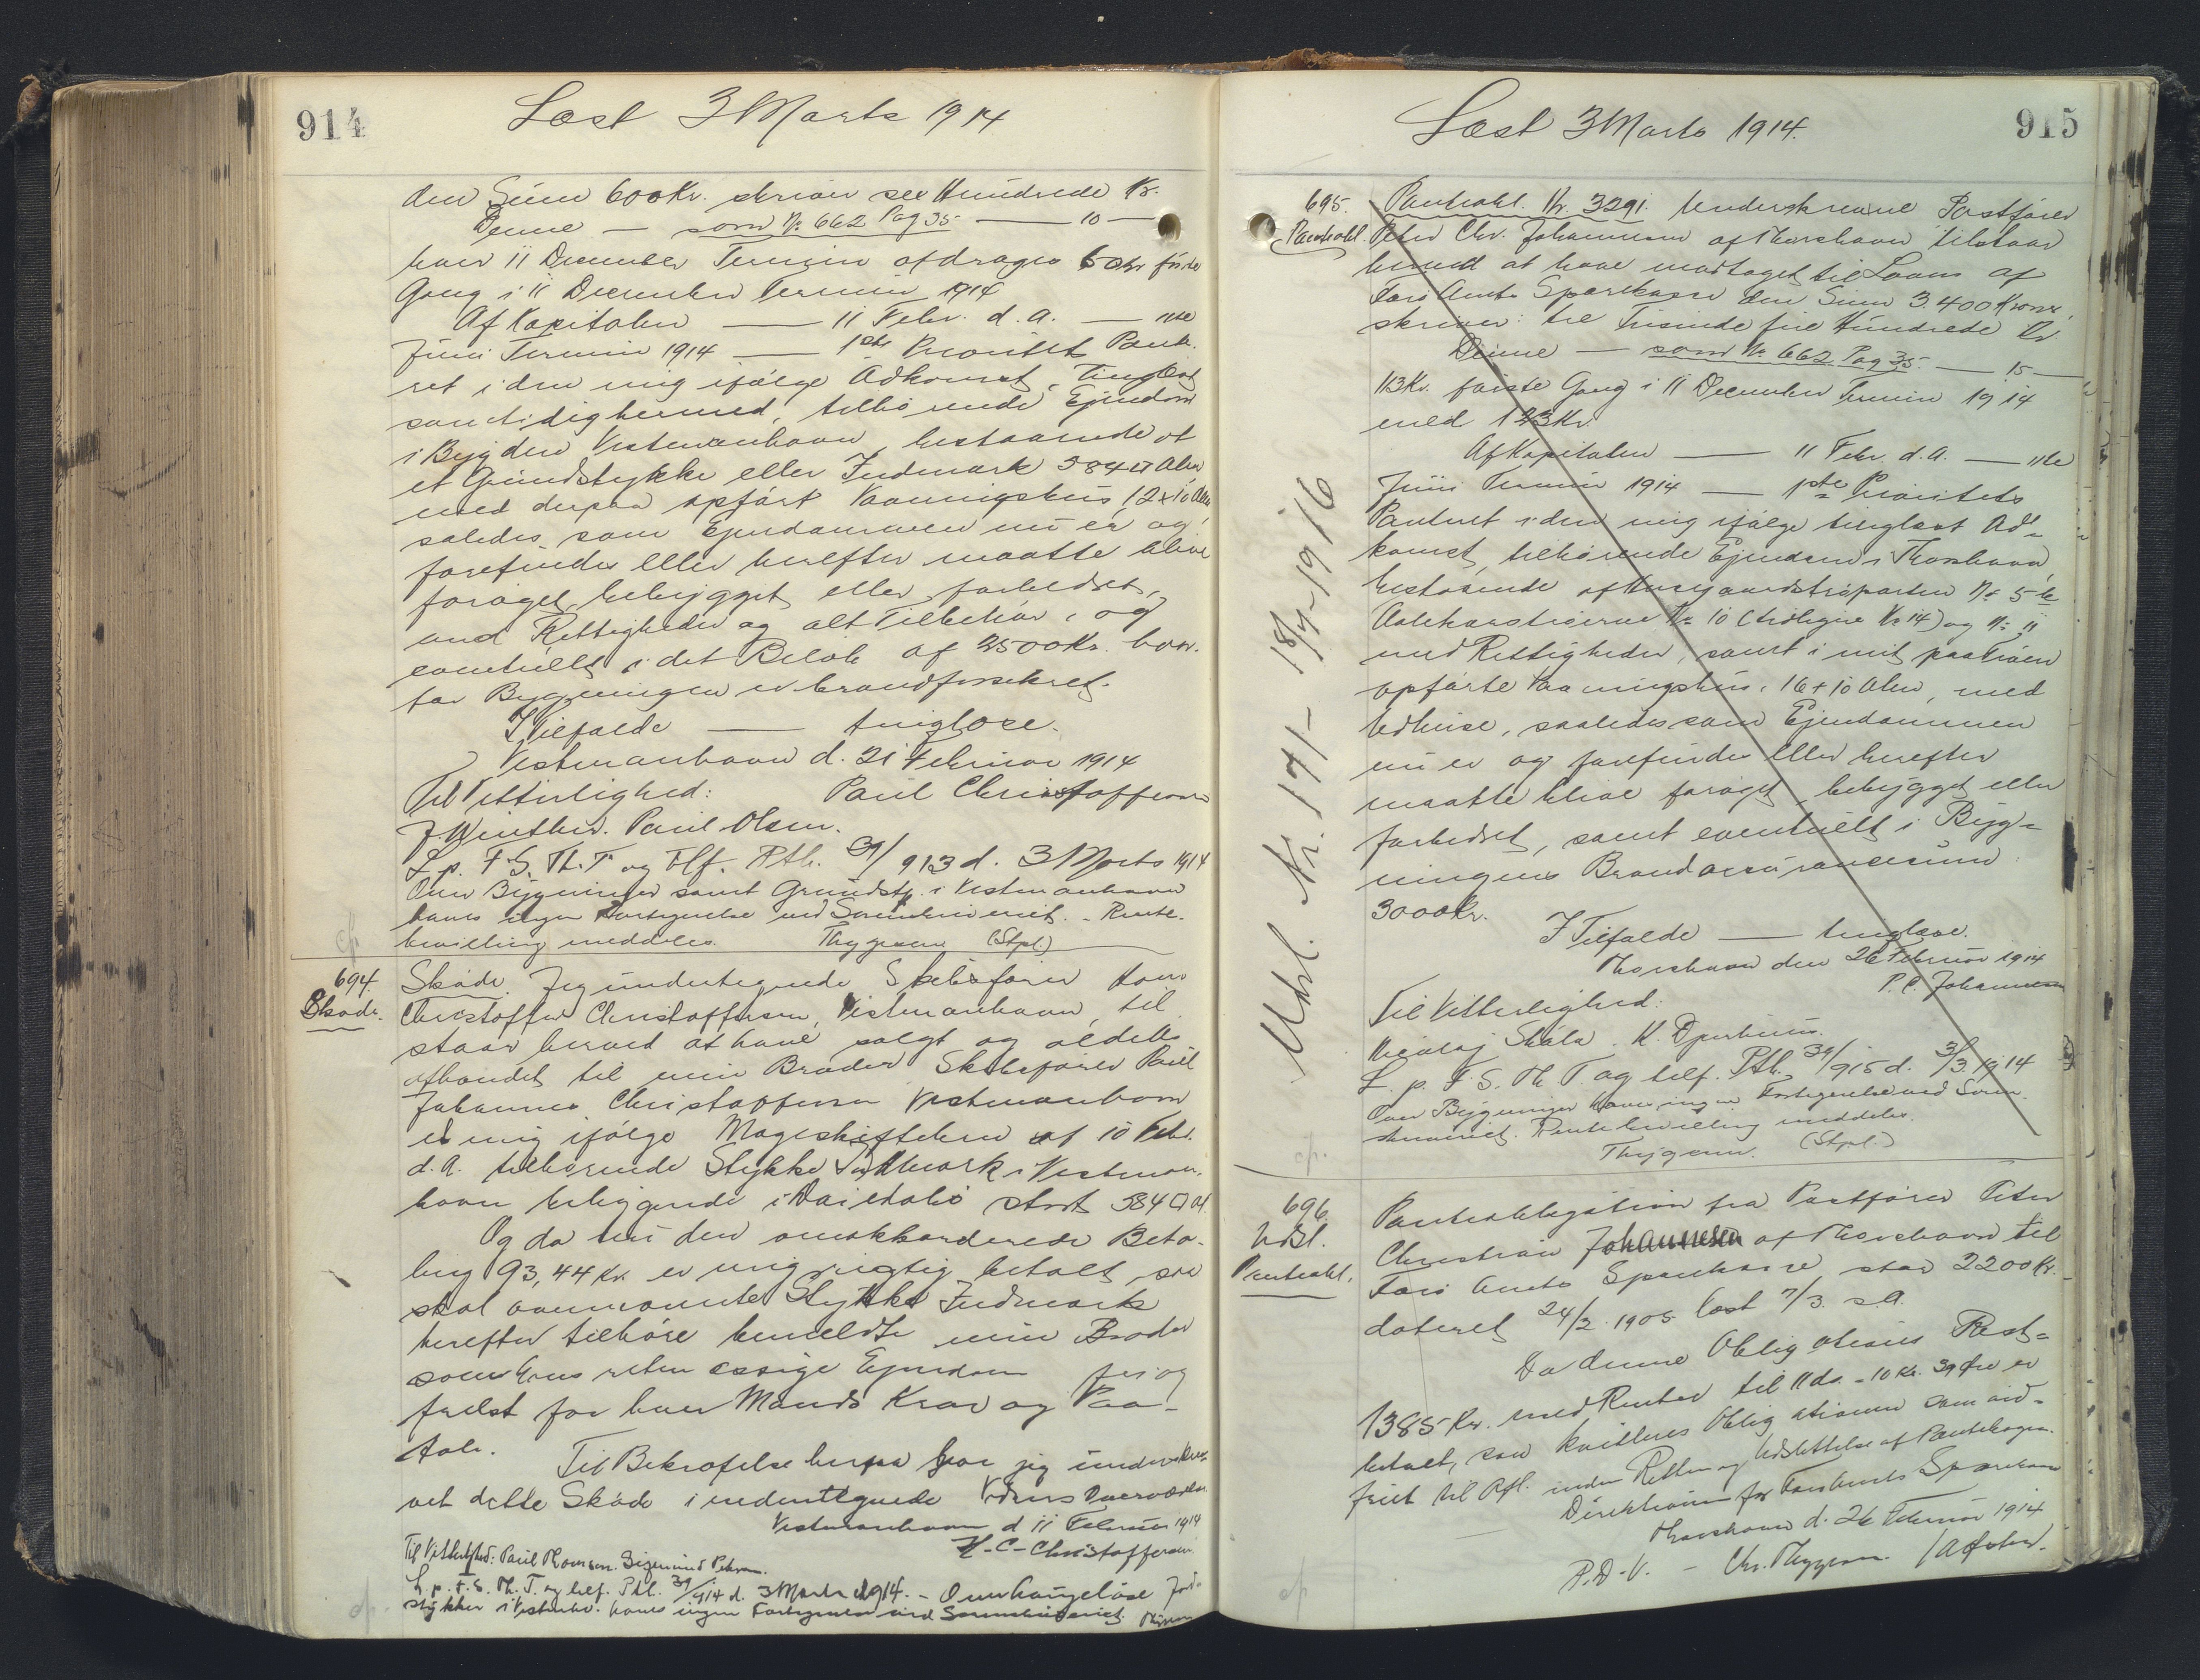 914
Læst 3 Marts 1914
den Sum 600 Kr. skriver sex Hundrede Kr.
Denne — som № 662 Pag 35 — 10 —
hver 11 December Termin afdrages 60 Kr første
Gang i 11 December Termin 1914
Af Kapitalen — 11 Febr. d. A. — 11te
Juni Termin 1914 — 1ste Prioritets Pant-
ret i den mig ifølge Adkomst, tinglæst
samtidig hermed, tilhørende Ejendom
i Bygden Vestmanhavn, bestaaende af
et Grundstykke eller Indmark 584 □ Alen
med derpaa opført Vaaningshus 12 x 10 Alen
saledes som Ejendommen nu er og
forefindes eller herefter maatte blive
forøget, bebygget eller forbedret,
med Rettigheder og alt Tilbehør, og
eventuelt i det Beløb af 2500 Kr. hvor-
for Bygningen er brandforsikret.
I Tilfælde — tinglæse.
Vestmanhavn d. 21 Februar 1914
Til Vitterlighed: Paul Christoffersen
J. Winther. Paul Olsen.
L. p. F. S. Th. T. og tilf. Ptb. 39/913 d. 3 Marts 1914
Over Bygninger samt Grundst. i Vestmanhavn
haves ingen Fortegnelse ved Sorenskriveriet. - Rente-
bevilling meddeles. Thygesen (Stpl.)
cp
694.
Skøde.
Skøde. Jeg undertegnede Skibsfører Hans
Christoffer Christoffersen, Vestmanhavn, til
staar herved at have solgt og aldeles
afhændet til min Broder Skibsfører Paul
Johannes Christoffersen Vestmanhavn
et mig ifølge Mageskiftebrev af 10 Febr.
d. A. tilhørende Stykke Indmark i Vestman-
havn beliggende i stort 584 □ Al.
Og da nu den omakkorderede Beta-
ling 93,44 Kr. er mig rigtig betalt, saa
skal ovennævnte Stykke Indmark
herefter tilhøre bemeldte min Broder
som hans retmæssige Ejendom fri og
frelst for hver Mands Krav og Paa-
tale.
Til Bekræftelse herpaa har jeg underskre-
vet dette Skøde i undertegnede Vidners Overværelse.
Vestmanhavn d 11 Februar 1914
H. C. Christoffersen
Til Vitterlighed: Paul Thomsen. Sigmund Petersen.
L. p. F. S. Th. T. og tilf. Ptb. 39/914 d. 3 Marts 1914. - Over haugeløse Jord-
stykker i Vestmanh. haves ingen Fortegnelse ved Sorenskriveriet. Thygesen
cp.
915
Læst 3 Marts 1914.
695.
Pantobl.
Pantobl. Nr. 3291. Underskrevne Postfører
Peter Chr. Johannesen af Thorshavn tilstaar
herved at have modtaget til Laans af
Færø Amts Sparekasse den Sum 3.400 Kroner,
skriver: tre Tusinde fire Hundrede Kr
Denne — som № 662 Pag 35. — 15 —
113 Kr. første Gang i 11 December Termin 1914
med 123 Kr
Af Kapitalen — 11 Febr. d. A. — 11te
Juni Termin 1914 — 1ste Prioritets
Panteret i den mig ifølge tinglæst Ad-
komst, tilhørende Ejendom i Thorshavn,
bestaaende af № 5 b
№ 10 (tidligere № 14) og № 11
med Rettigheder, samt i mit paa Trøen
opførte Vaaningshus, 16 + 10 Alen, med
Udhuse, saaledes som Ejendommen
nu er og forefindes eller herefter
maatte blive forøget, bebygget eller
forbedret, samt eventuelt i Byg-
ningens Brandassurancesum
3000 Kr.
I Tilfælde — tinglæse.
Thorshavn den 26 Februar 1914
P. C. Johannesen
Til Vitterlighed:
Nicolaj Skála. K. Djurhuus.
L. p. F. S. Th T. og tilf. Ptb. 39/915 d. 3/3 1914
Over Bygninger haves ingen Fortegnelse ved Soren-
skriveriet. Rentebevilling meddeles.
Thygesen. (Stpl.)
cp.
Udsl. Nr. 171 - 18/4 - 1916
696.
Udsl.
Pantobl.
Panteobligation fra Postfører Peter
Christian Johannesen af Thorshavn til
Færø Amts Sparekasse, stor 2200 Kr.
dateret 24/2 1905 læst 7/3 s. A.
Da denne Obligations Rest-
1385 Kr. med Renter til 11 ds. - 10 Kr. 39 Øre er
betalt, saa kvitteres Obligationen som ind-
friet til Afl. inden Retten og Udslettelse af Pantebogen.
Direktionen for Færø Amts Sparekasse
Thorshavn d. 26 Februar 1914
P. D. V. - Chr. Thygesen.
cp